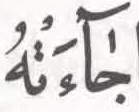 جَآءَتْهُ